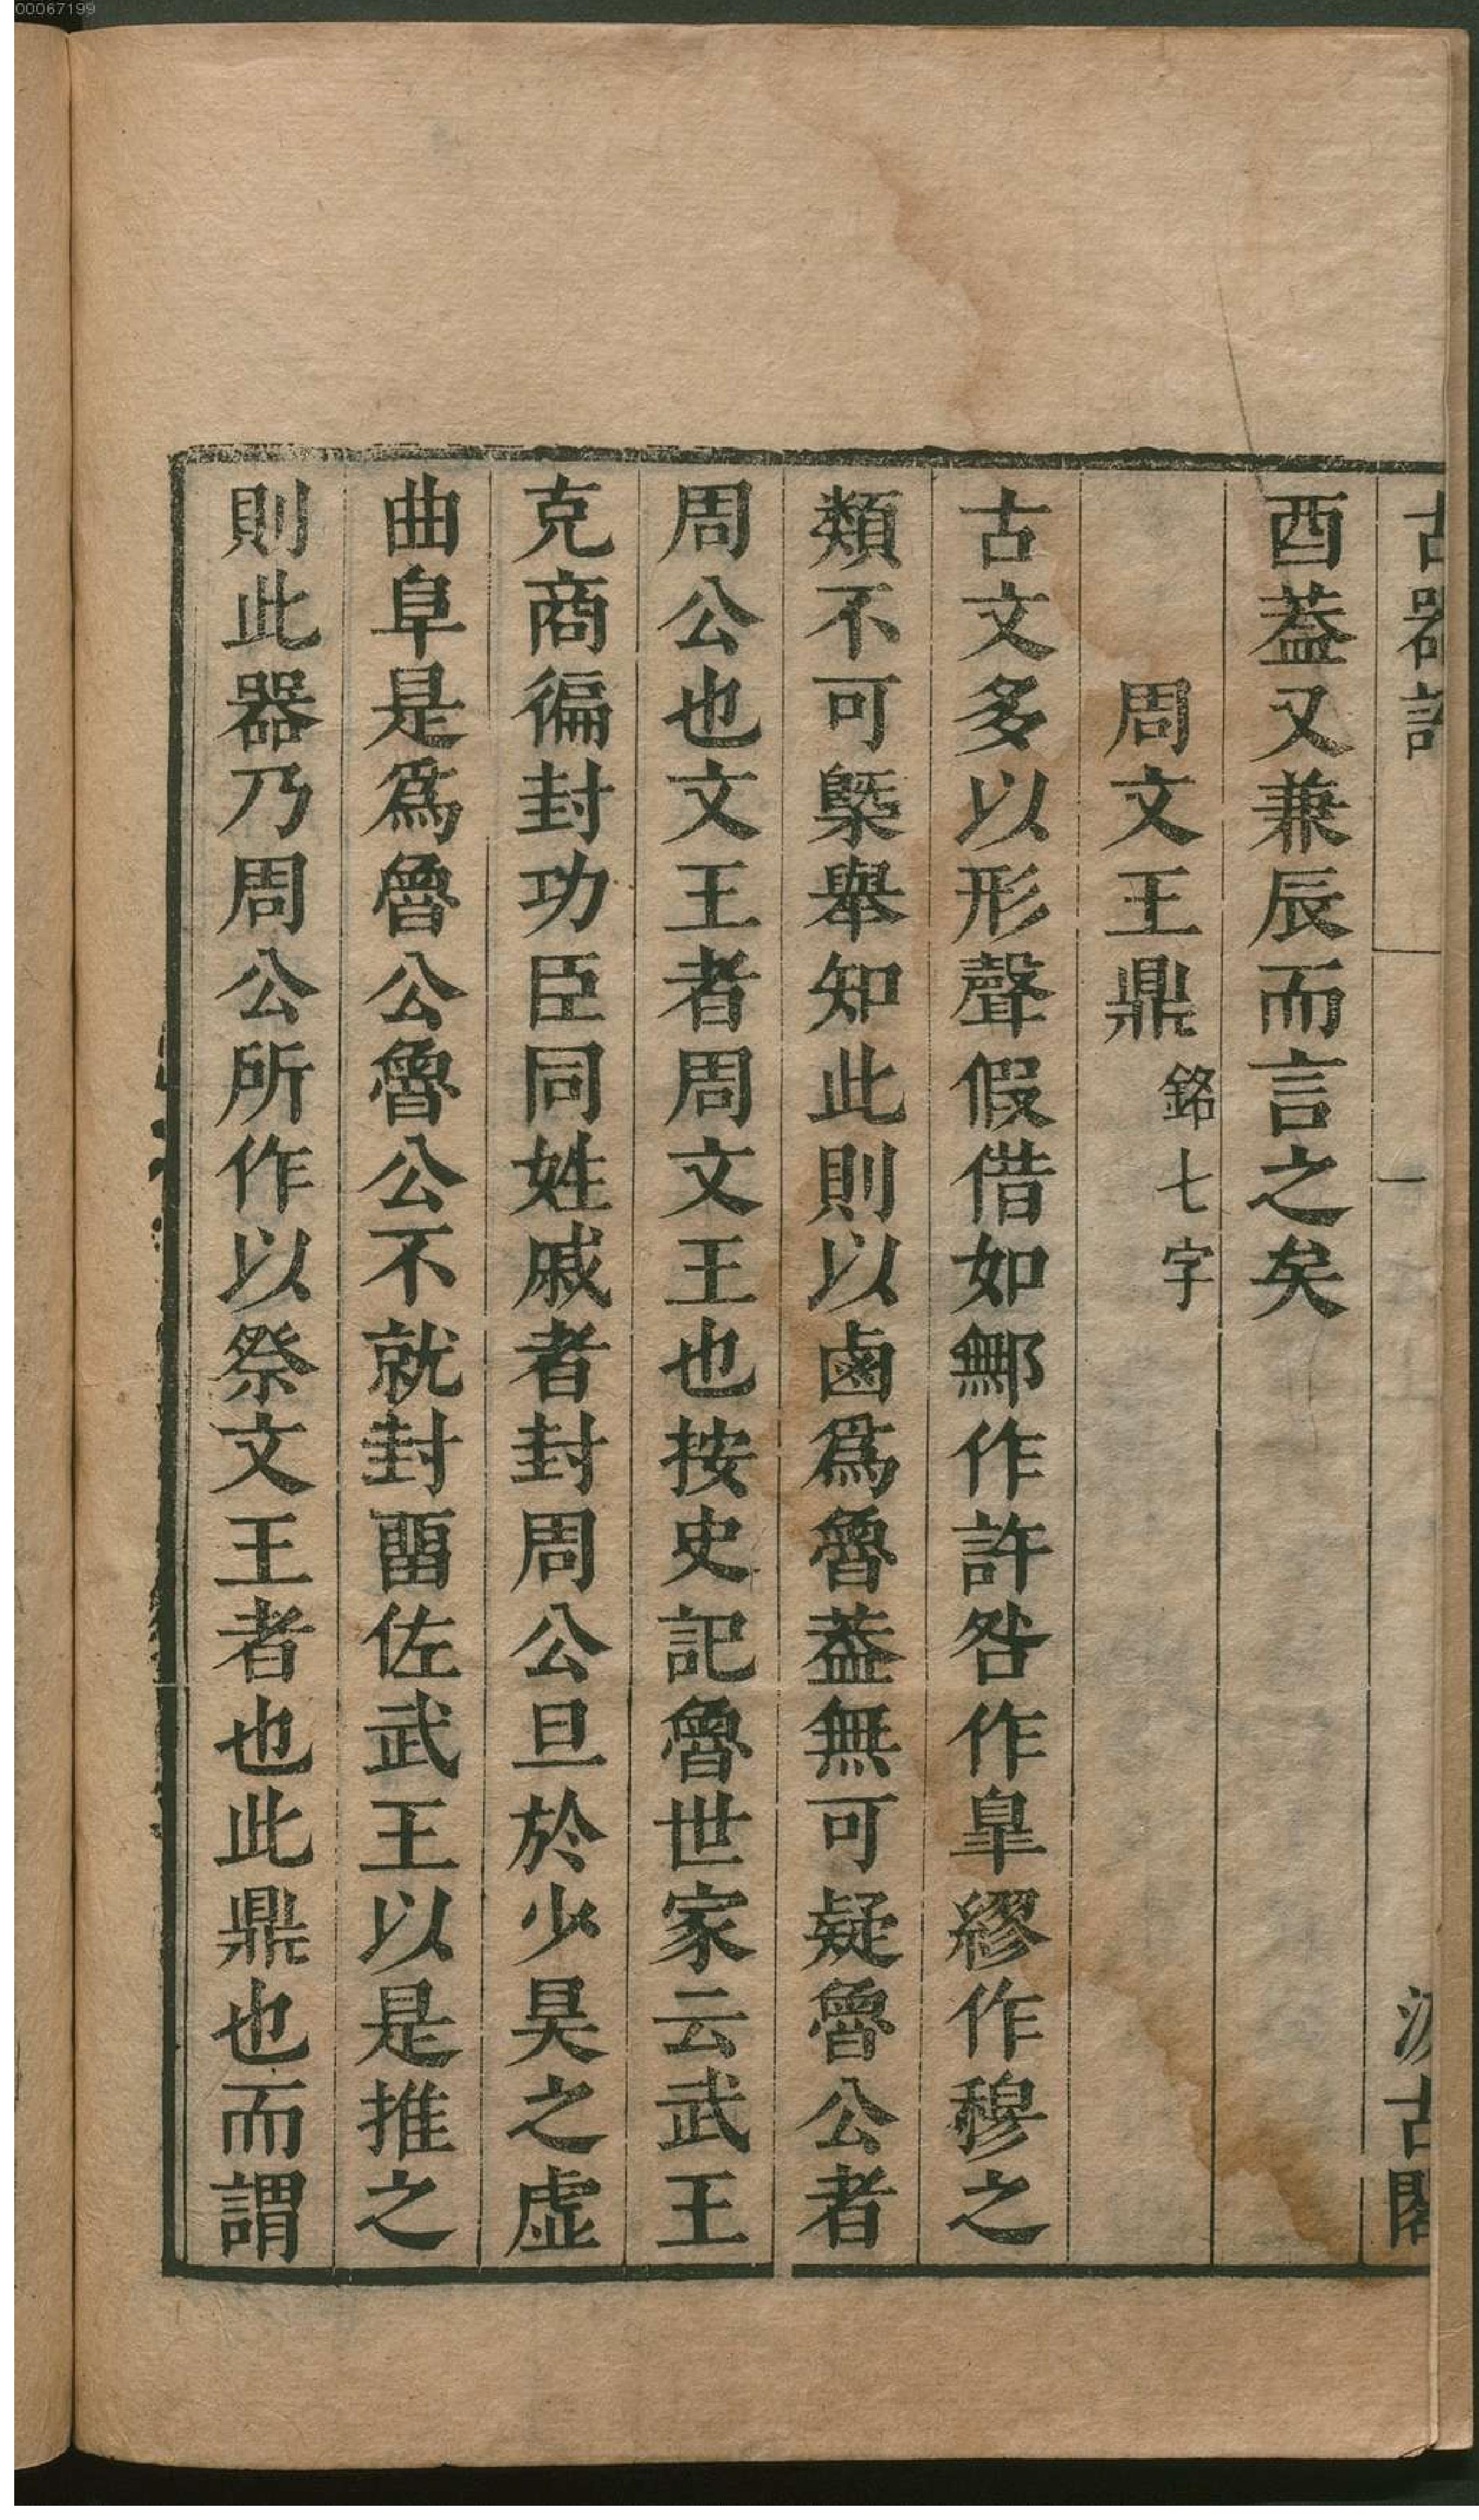 00067199
古器
一
古閣
酉葢又兼辰而言之矣
周文王鼎 銘七字
古文多以形聲假借如鄦作許咎作皐繆作穆之
類不可槩舉知此則以鹵爲魯葢無可疑魯公者
周公也文王者周文王也按史記魯世家云武王
克商徧封功臣同姓戚者封周公旦於少昊之虛
曲阜是爲魯公魯公不就封畱佐武王以是推之
則此器乃周公所作以祭文王者也此鼎也而謂